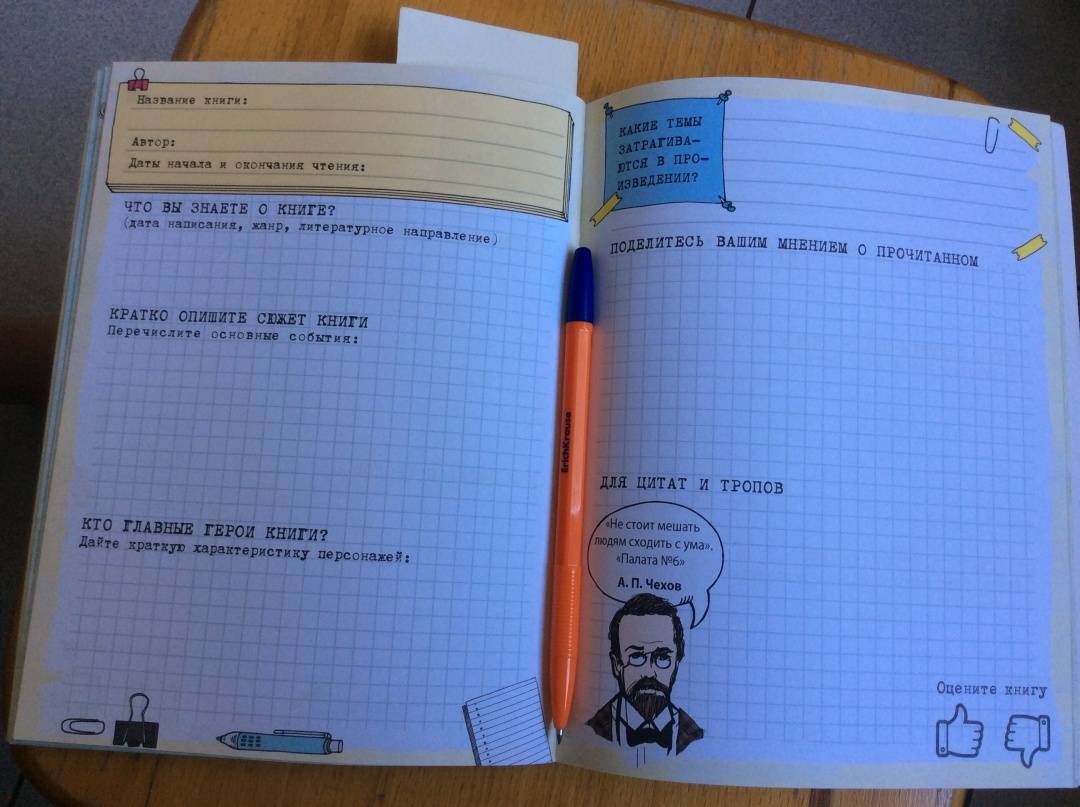 Название книги:
Автор:
Даты начала и окончания чтения:
ЧТО ВЫ ЗНАЕТЕ О КНИГЕ?
(дата написания, жанр, литературное направление)
КРАТКО ОПИШИТЕ СЮЖЕТ КНИГИ
Перечислите основные события:
КТО ГЛАВНЫЕ ГЕРОИ КНИГИ?
Дайте краткую характеристику персонажей:
ErichKrause
КАКИЕ ТЕМЫ
ЗАТРАГИВА-
ЮТСЯ В ПРО-
ИЗВЕДЕНИИ?
ПОДЕЛИТЕСЬ ВАШИМ МНЕНИЕМ О ПРОЧИТАННОМ
ДЛЯ ЦИТАТ И ТРОПОВ
«Не стоит мешать
людям сходить с ума».
«Палата №6»
А. П. Чехов
Оцените книгу